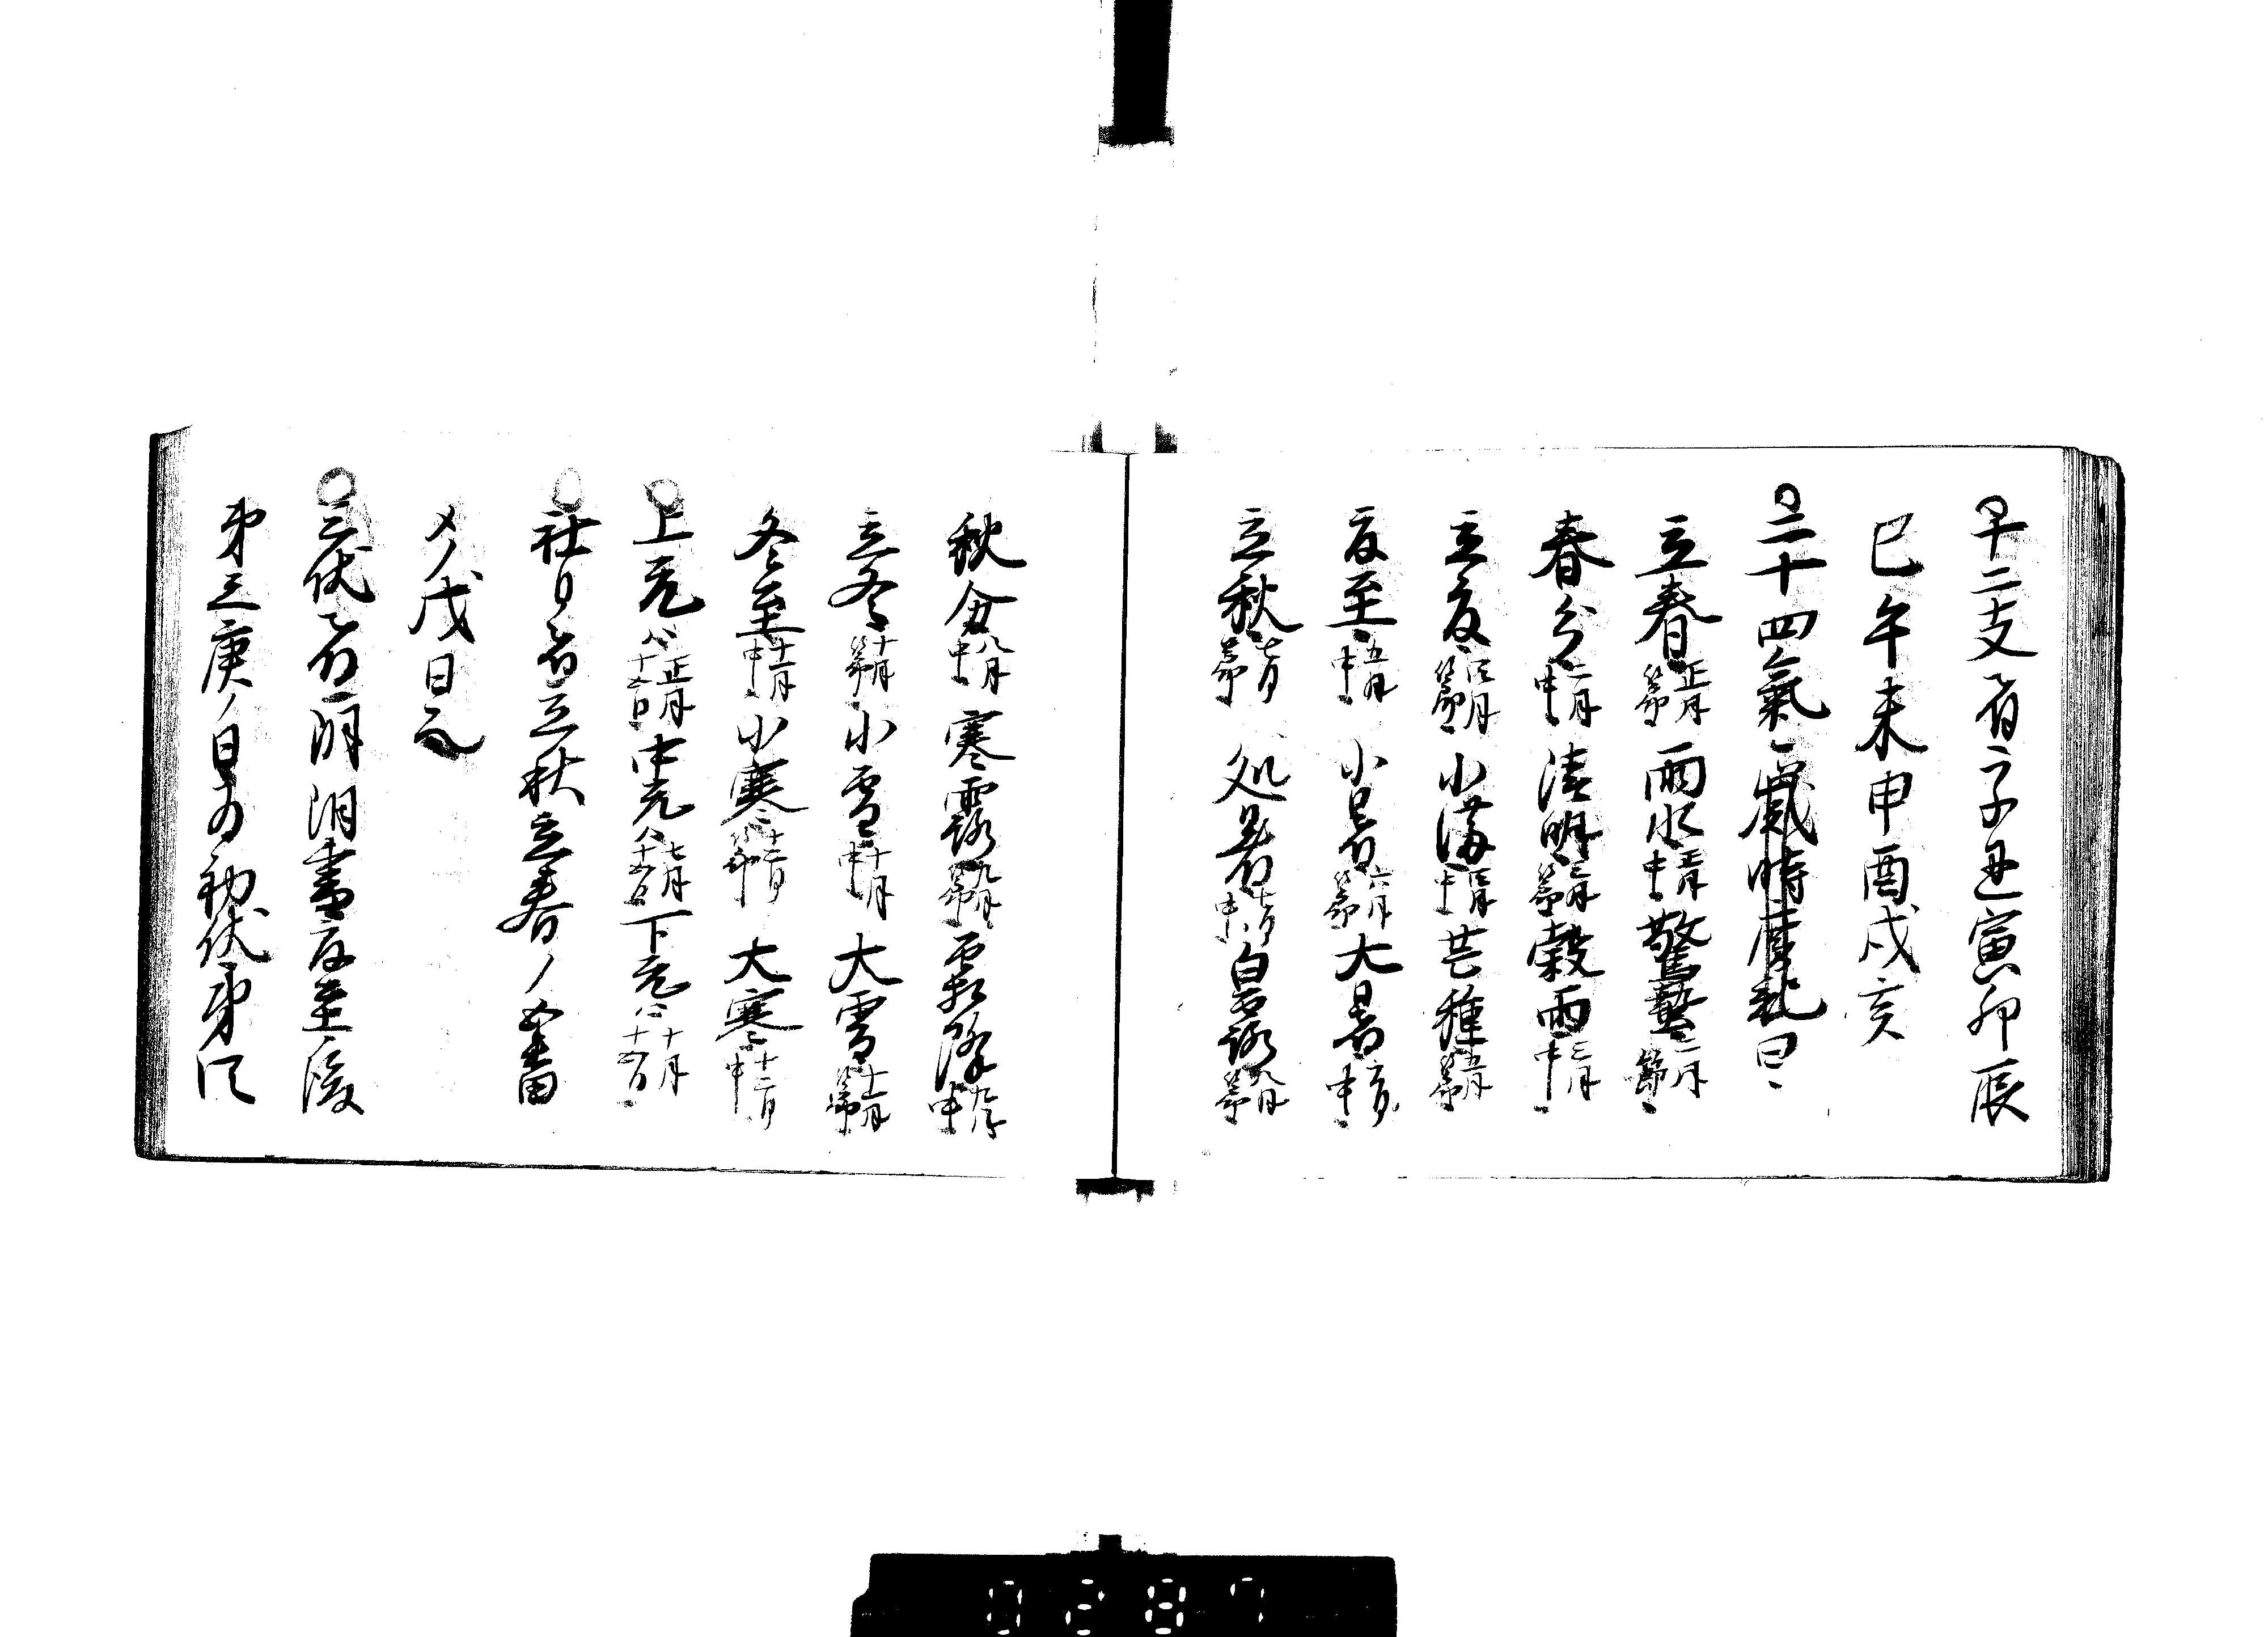 十二支者子丑寅卯辰
巳午未申酉戌亥
二十四氣歳時
立春正月節雨水正月中驚蟄二月節
春分二月中清明三月節穀雨三月中
立夏四月節小満四月中芒種五月節
夏至五月中小暑六月節大暑六月中
立秋七月節処暑七月中白露八月節
秋分八月中寒露九月節霜降九月中
立冬十月節小雪十月中大雪十一月節
冬至十一月中小寒十二月節大寒十二月中
上元ハ正月十五日中元ハ七月十五日下元ハ十月十五日
社日者立秋立春ノ後
メノ戊日
三伏者夏至後
第三庚ノ日為初伏第